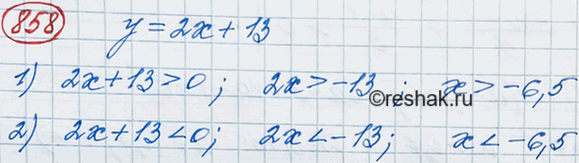 858 y = 2x + 13
1) 2x+13>0; 2x>-13; x>-6,5
©reshak.ru
2) 2x+13<0; 2x<-13; x<-6,5